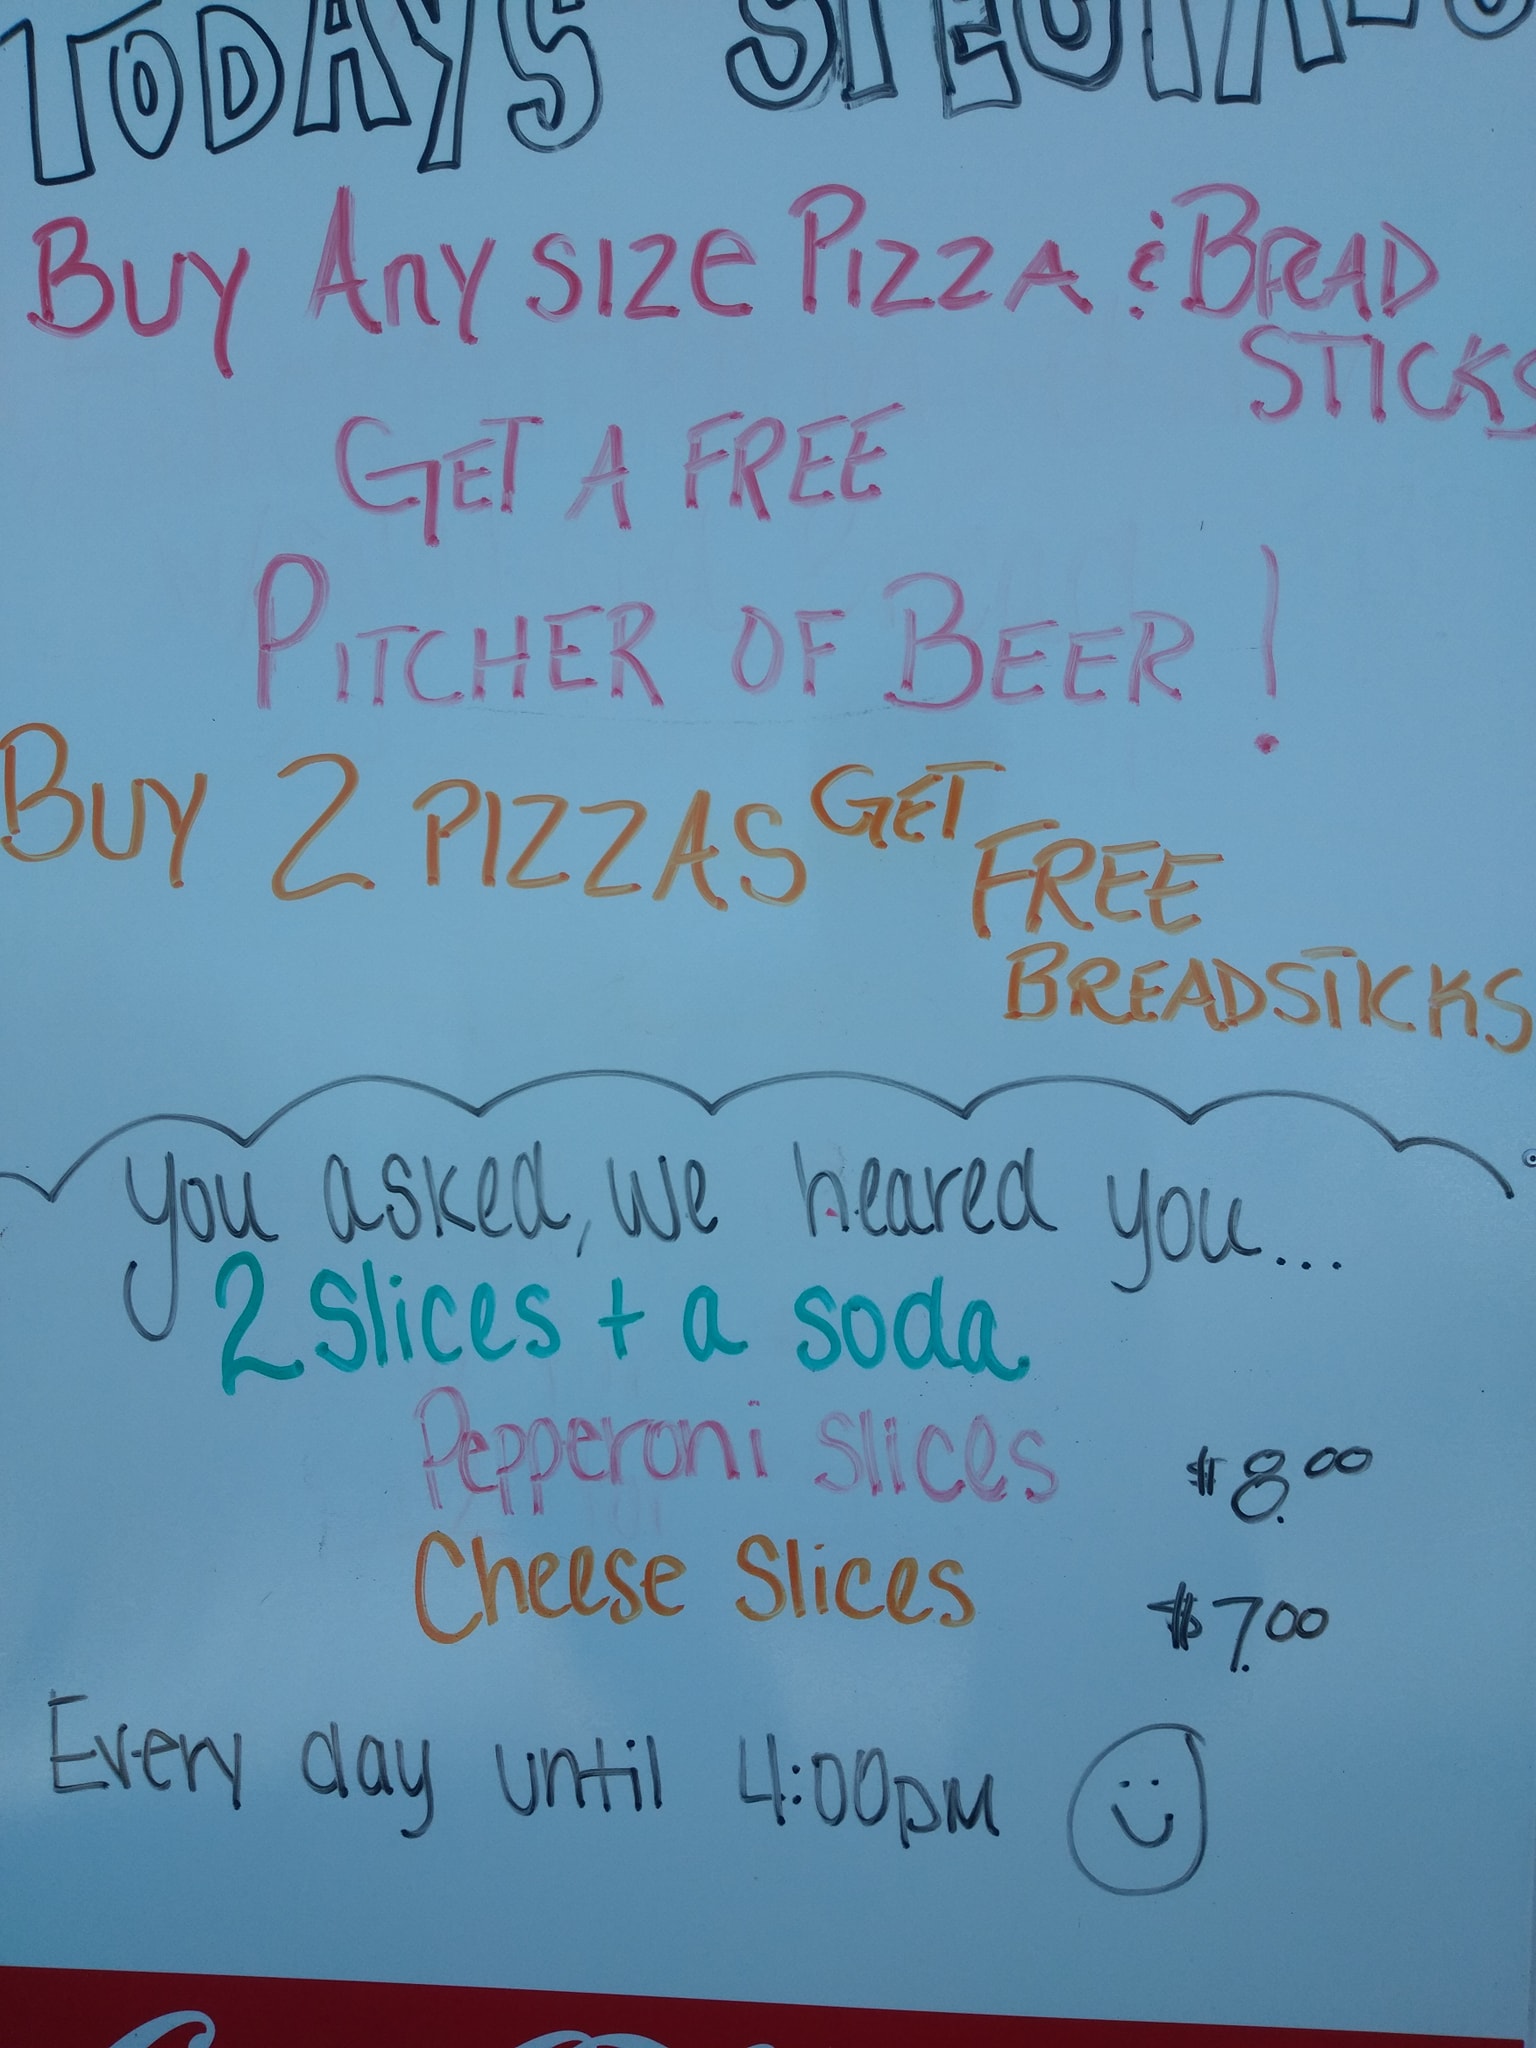 TODAYS SPECIALS
BUY ANY SIZE PIZZA & BREAD
STICKS
GET A FREE
PITCHER OF BEER!
BUY 2 PIZZAS GET
FREE
BREADSTICKS
you asked, we heared you...
2 Slices + a soda
Pepperoni Slices $8.00
Cheese Slices $7.00
Every day until 4:00PM